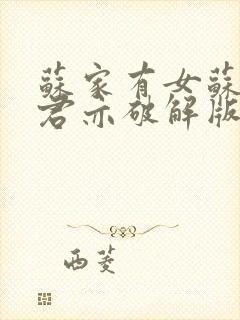 蘇家有女蘇
君亦破解版
西菱